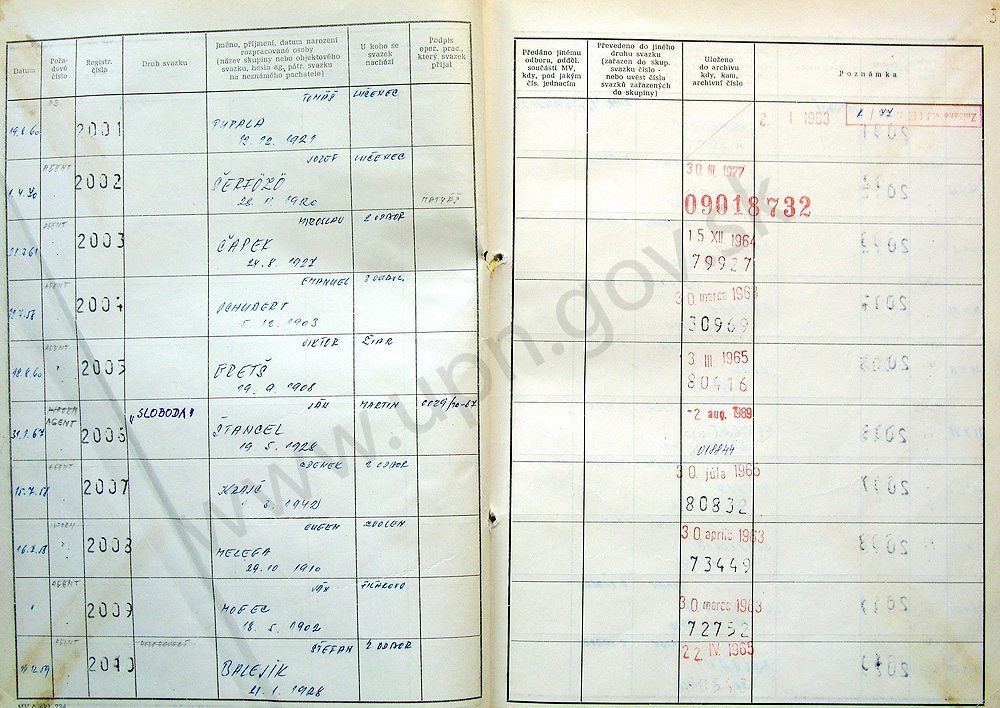 Datum
Pořadové číslo
Registr. číslo
Druh svazku
Jméno, příjmení, datum narození rozpracované osoby (název skupiny nebo objektového svazku, heslo ag. pátr. svazku na neznámého pachatele)
U koho se svazek nachází
Podpis oper. prac., který svazek přijal
Předáno jinému odboru, odděl. součásti MV, kdy, pod jakým čís. jednacím
Převedeno do jiného druhu svazku (zařazen do skup. svazku číslo - nebo uvést čísla svazků zařazených do skupiny)
Uloženo do archivu kdy, kam, archivní číslo
Poznámka
19.8.60 2001 TOMÁŠ LUČENEC
TUPALA
13. 12. 1921
2. I 1963
AGENT
1.4.70 2002 JOZEF LUČENEC
ŠERFÖZÖ
28. 11 1920 MATYÁŠ
30 III. 1977
09018732
AGENT
2003 MIROSLAV 2 ODBOR
ČAPEK
24. 8. 1927
15 XII. 1964
79927
AGENT
2004 EMANUEL
SCHUBERT
5. 12. 1903
30 marca 1963
30969
AGENT
18.8.60 2005 VIKTOR ŽIAR
19. 9. 1908
13 III 1965
80416
AGENT
31.7.67 2006 „SLOBODA" JÁN MARTIN
ŠTANCEL
19. 5. 1928
-2 aug. 1989
018844
AGENT
15.7.58 2007 ZDENEK 2 ODBOR
1. 3. 1942
30 júla 1965
80832
2008 EUGEN ZVOLEN
MELEGA
29. 10 1910
30 apríla 1963
73449
AGENT
2009 JÁN FIĽAKOVO
MOGEC
18. 5. 1902
30 marca 1963
72752
AGENT
2010 ŠTEFAN 2 ODBOR
BALEJÍK
21. 1. 1928
22 IV. 1965
www.upn.gov.sk